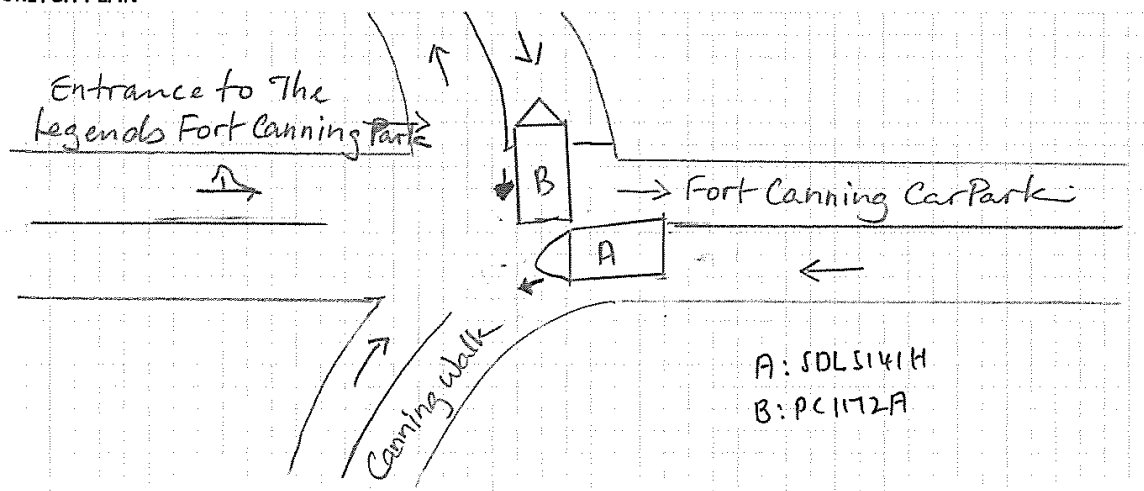 Entrance to The
Legends Fort Canning Park
B
Fort Canning CarPark
A
Canning Walk
A: SDL5141H
B: PC1172A